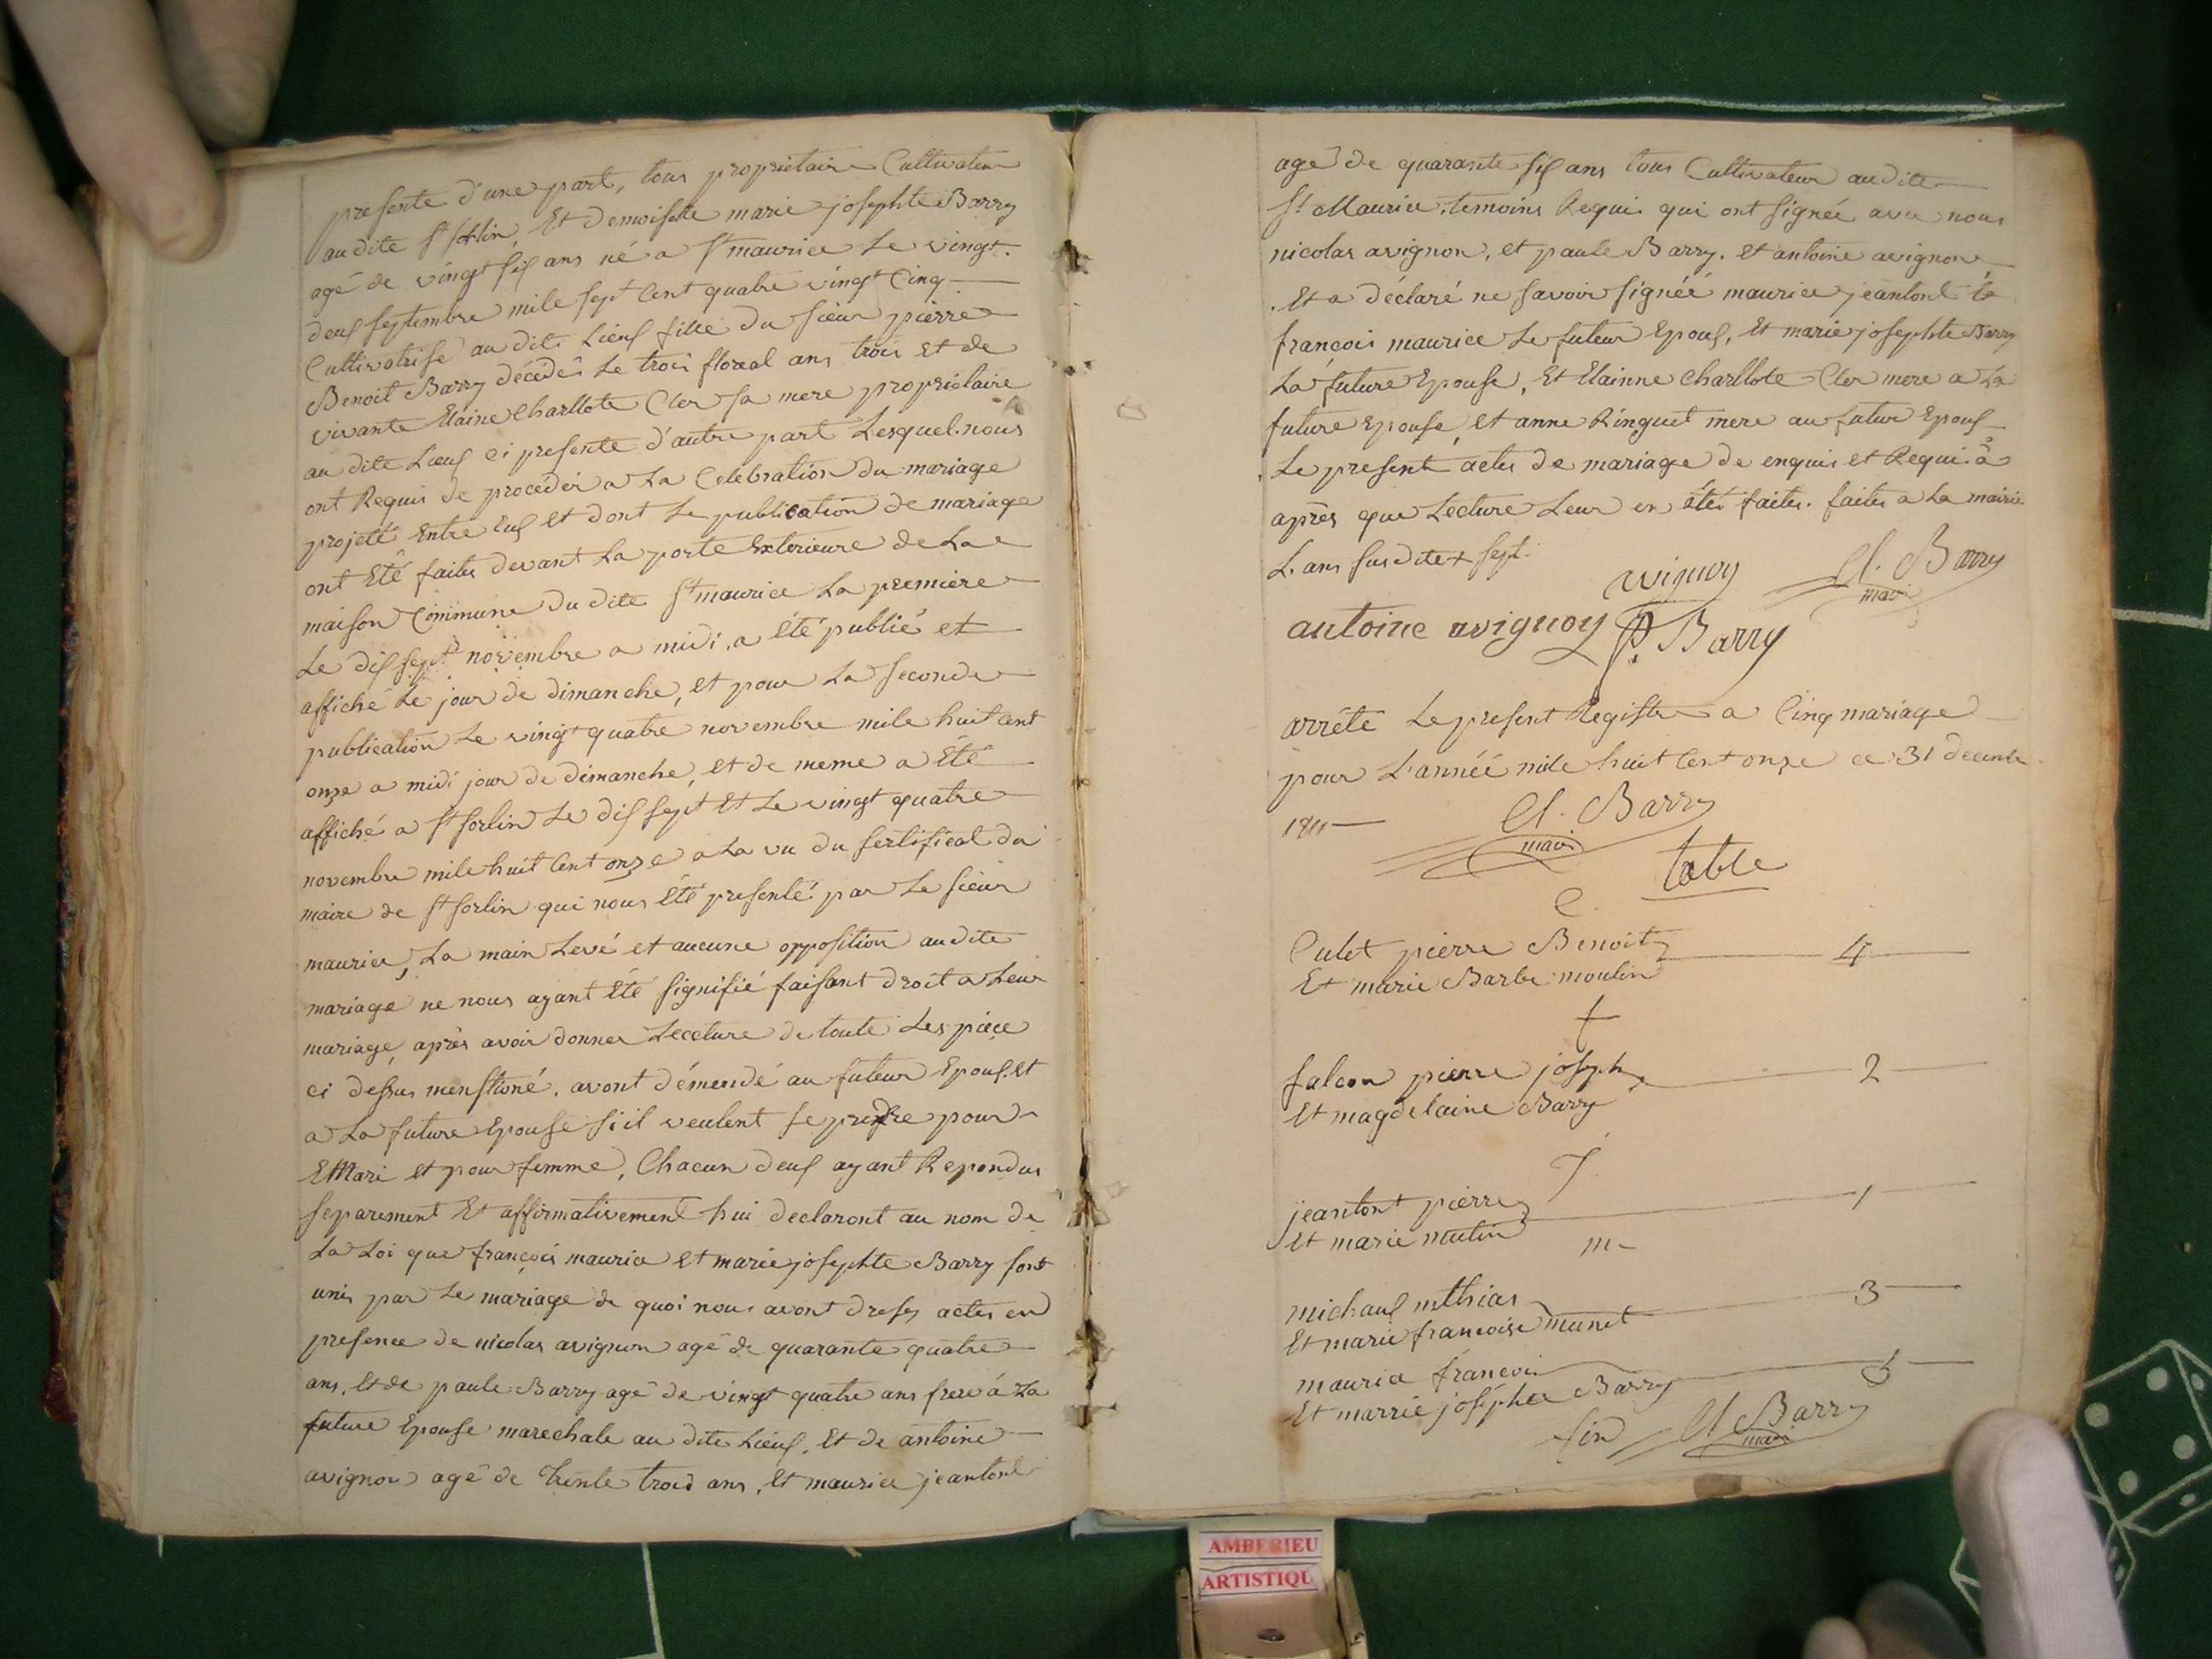 presente d'une part, tous propriétaire Cultivateur
audite St Sorlin, Et demoiselle marie josephte Barry
agé de vingt six ans né a St maurice Le vingt
deux septembre mile sept Cent quatre vingt Cinq
Cultivatrise au dit Lieux fille du sieur pierre
Benoit Barry décédés Le trois floreal ans trois et de
vivante Elaine Charllote Cler sa mere propriétaire
au dite Lieux ci presente d'autre part Lesquel nous
ont Requis de procéder a La Celebration du mariage
projeté Entre Eux et dont Le publication de mariage
ont Eté faites devant La porte Exterieure de La
maison Commune du dite St maurice La premiere
Le dix sept novembre a midi, a Eté publié et
affiché Le jour de dimanche, et pour La seconde
publication Le vingt quatre novembre mile huit Cent
onze a midi jour de dimanche, et de meme a Eté
affiché a St Sorlin Le dix sept Et Le vingt quatre
novembre mile huit Cent onze a La vu du sertificat du
maire de St Sorlin qui nous Eté presenté par Le sieur
maurice, La main Levé et aucune opposition audite
mariage ne nous ayant Eté signifié faisant droit a Leur
mariage, après avoir donner Leceture de toute Les pièce
ci dessus menstioné, avont démendé au futeur Epoux et
a La future Epouse si il veulent se prendre pour
Mari et pour femme, Chacun deux ayant Repondus
separement Et affirmativement hui declaront au nom de
La Loi que françois maurice et marie josephte Barry sont
unis par Le mariage de quoi nous avont dressy actes en
presence de nicolas avignon agé de quarante quatre
ans, et de paule Barry agé de vingt quatre ans frere á La
future Epouse marechale au dite Lieux, Et de antoine
avignon agé de trente trois ans, et maurice jeantont
agé de quarante six ans tous Cultivateur audite
St Maurice, temoins Requis qui ont signée avec nous
nicolas avignon, et paule Barry, et antoine avignon
Et a déclaré ne savoir signéé maurice jeantont Et
françois maurice Le futeur Epoux, Et marie josephte Barry
La future Epouse, Et Elainne Charllote Cler mere a La
future Epouse, et anne Ringuet mere au futur Epoux
Le present actes de mariage de enquis et Requis á
après que Lecture Leur en étéé faites. faites a La mairie
L'ans susdite + sept.
avignon Cl. Barry
mair
antoine avignon P. Barry
arrêté Le present Registre a Cinq mariage
pour L'annéé mile huit Cent onze ce 31 decembre
1811
Cl. Barry
mair
table
C.
Culet pierre Benoit 4
Et marie Barbe moulin
f
falcon pierre joseph 2
Et magdelaine Barry
J.
jeantont pierre 1
Et marie
m
michaux mthias 3
Et marie francoise munet
maurice françois 5
Et marrie joséphte Barry
fin Cl Barry
mair
AMBERIEU
ARTISTIQU